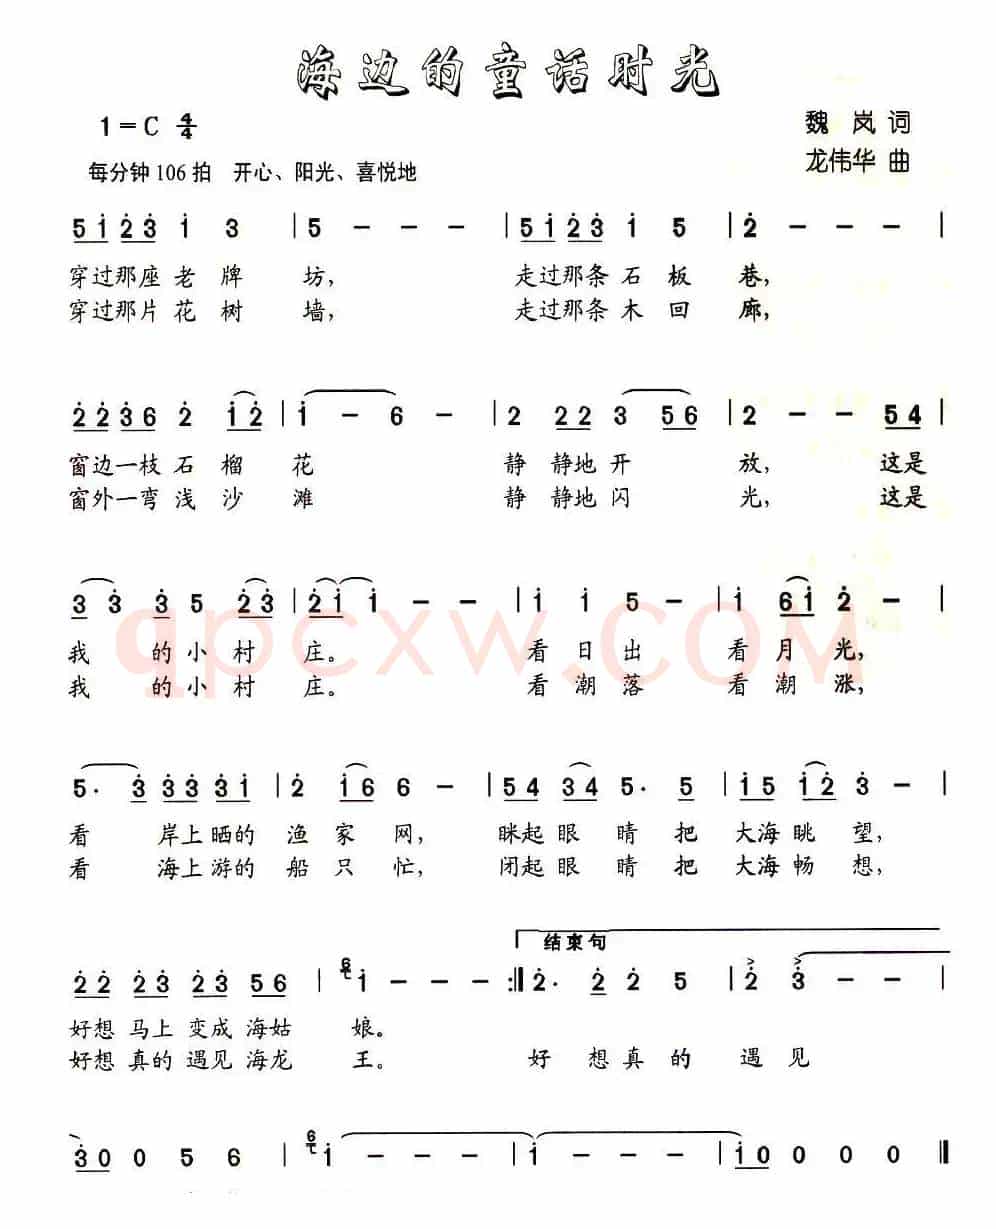 海边的童话时光
1=C 4/4
魏岚 词
每分钟106拍 开心、阳光、喜悦地
龙伟华 曲
5 1̇ 2̇ 3̇ 1̇ 3 | 5 - - - | 5 1̇ 2̇ 3̇ 1̇ 5 | 2̇ - - - |
穿过那座老牌坊, 走过那条石板巷,
穿过那片花树墙, 走过那条木回廊,
2̇ 2̇ 3̇ 6 2̇ 1̇ 2̇ | 1̇ - 6 - | 2 2 2 3 5 6 | 2 - - 5 4 |
窗边一枝石榴花 静静地开放, 这是
窗外一弯浅沙滩 静静地闪光, 这是
3̇ 3̇ 3̇ 5 2̇ 3̇ | 2̇ 1̇ 1̇ - - | 1̇ 1̇ 5 - | 1̇ 6 1̇ 2̇ - |
我的小村庄。 看日出 看月光,
我的小村庄。 看潮落 看潮涨,
qpcxw.COM
5· 3̇ 3̇ 3̇ 3̇ 1̇ | 2̇ 1̇ 6 6 - | 5 4 3 4 5· 5 | 1̇ 5 1̇ 2̇ 3̇ - |
看 岸上晒的渔家网, 眯起眼睛把大海眺望,
看 海上游的船只忙, 闭起眼睛把大海畅想,
结束句
2̇ 2̇ 2̇ 3̇ 2̇ 3̇ 5 6 | 6 1̇ - - - :‖ 2̇· 2̇ 2̇ 5 | 2̇ 3̇ - - |
好想马上变成海姑娘。
好想真的遇见海龙王。 好想真的遇见
3̇ 0 0 5 6 | 6 1̇ - - - | 1̇ - - - | 1̇ 0 0 0 0 ‖